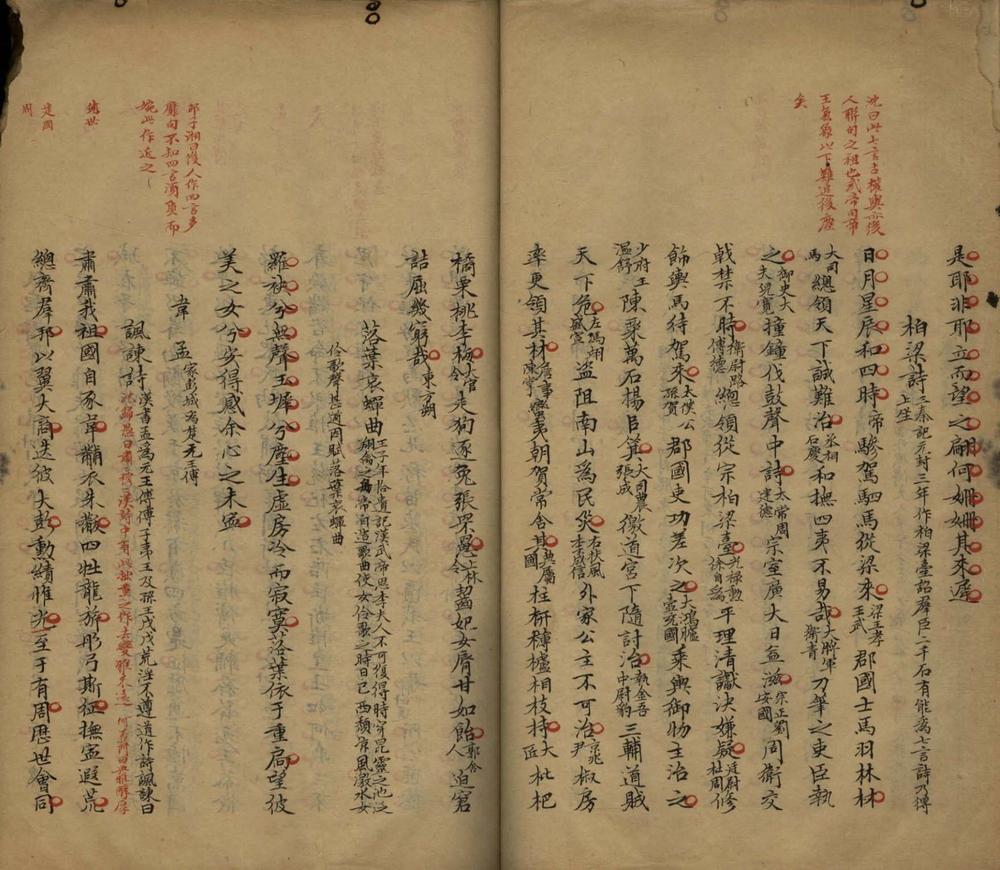 沈曰此七言古權輿亦後
人聯句之祖也武帝句帝
王氣象以下難追後塵
矣
是耶非耶立而望之翩何姍姍其來遲
柏梁詩 三秦記元封三年作柏梁臺詔羣臣二千石有能為七言詩乃得上坐
日月星辰和四時 帝 驂駕駟馬從梁來 梁王孝王武 郡國士馬羽林林
大司馬 總領天下誠難治 丞相石慶 和撫四夷不易哉 大將軍衛青 刀筆之吏臣執
之 御史大夫兒寬 撞鐘伐鼓聲中詩 太常周建德 宗室廣大日益滋 宗正劉安國 周衛交
戟禁不時 衛尉路博德 總領從宗柏梁臺 光祿勳徐自為 平理清讞決嫌疑 廷尉杜周 修
飾輿馬待駕來 太僕公孫賀 郡國吏功差次之 大鴻臚壺充國 乘輿御物主治之
少府王溫舒 陳粟萬石揚目箕 大司農張成 徼道宮下隨討治 執金吾中尉豹 三輔盜賊
天下危 左馮翊盛宣 盜阻南山為民災 右扶風李成信 外家公主不可治 京兆尹 椒房
率更領其材 詹事陳掌 蠻夷朝賀常舍其 典屬國 柱枅欂櫨相枝持 大匠 枇杷
橘栗桃李梅 大官令 走狗逐兔張罘罳 上林令 齧妃女脣甘如飴 郭舍人 迫窘
詰屈幾窮哉 東方朔
落葉哀蟬曲 王子年拾遺記漢武帝思李夫人不可復得時穿昆靈之池泛翔禽之舟帝自造歌曲使女伶歌之時日已西頹涼風激水女
伶歌聲甚遒因賦落葉哀蟬曲
羅袂兮無聲玉墀兮塵生虛房冷而寂寞落葉依于重扃望彼
美之女兮安得感余心之未寧
韋孟 家彭城為楚元王傅
邵子湘曰後人作四言多
靡句不知四言須質而
婉此作近之
諷諫詩 漢書孟為元王傅傅子夷王及孫王戊戊荒淫不遵道作詩諷諫曰
肅肅我祖國自豕韋黼衣朱黻四牡龍旂彤弓斯征撫寧遐荒
總齊羣邦以翼大商迭彼大彭勳績惟光至于有周歷世會同
建國
周